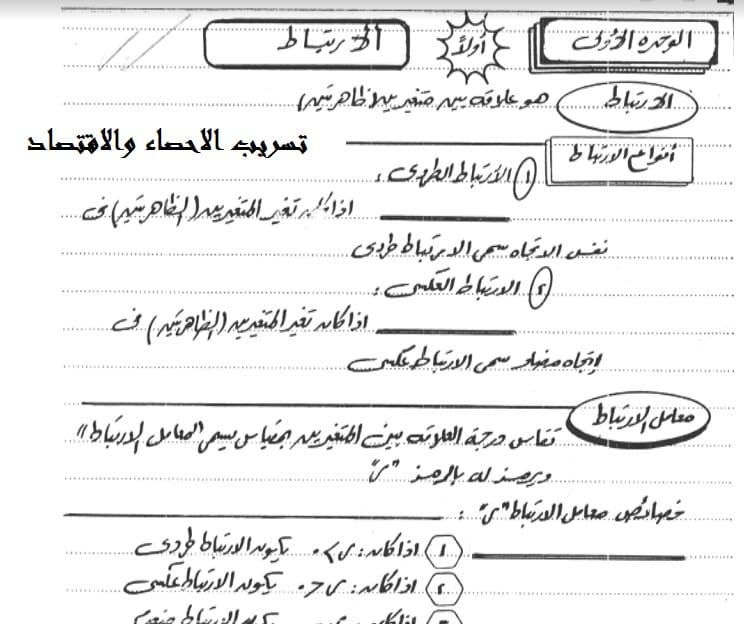 الوحدة الأولى
أولاً
الارتباط
الارتباط هو علاقة بين متغيرين (ظاهرتين)
تسريب الاحصاء والاقتصاد
أنواع الارتباط
١ الارتباط الطردى :
اذا كان تغير المتغيرين (الظاهرتين) فى
نفس الاتجاه سمى الارتباط طردى
٢ الارتباط العكسى :
اذا كان تغير المتغيرين (الظاهرتين) فى
إتجاه مضاد سمى الارتباط عكسى
معامل الارتباط
تقاس درجة العلاقة بين المتغيرين بمقياس يسمى "معامل الارتباط"
ويرمز له بالرمز "ر"
خصائص معامل الارتباط "ر" :
١ اذا كان : ر > ٠ يكون الارتباط طردى
٢ اذا كان : ر < ٠ يكون الارتباط عكسى